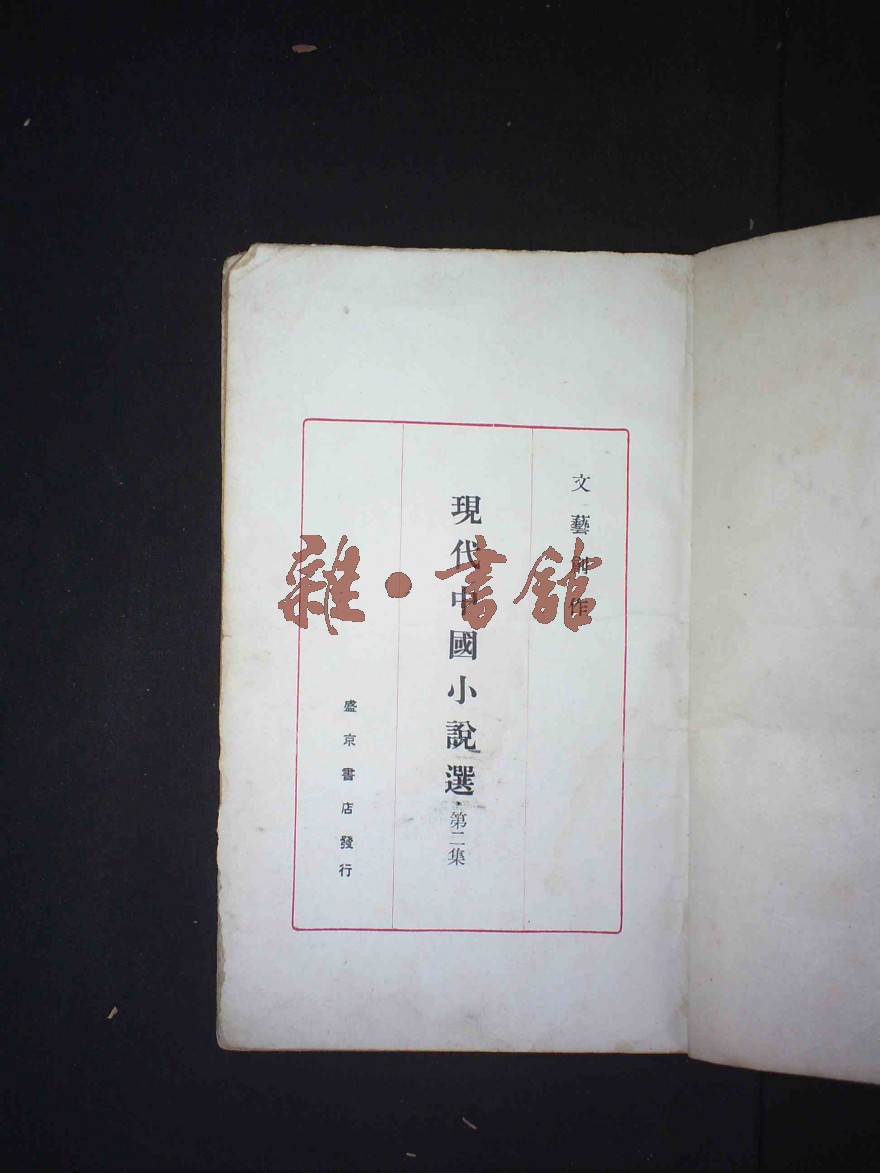 文藝創作
現代中國小說選・第二集
盛京書店發行
雜・書館